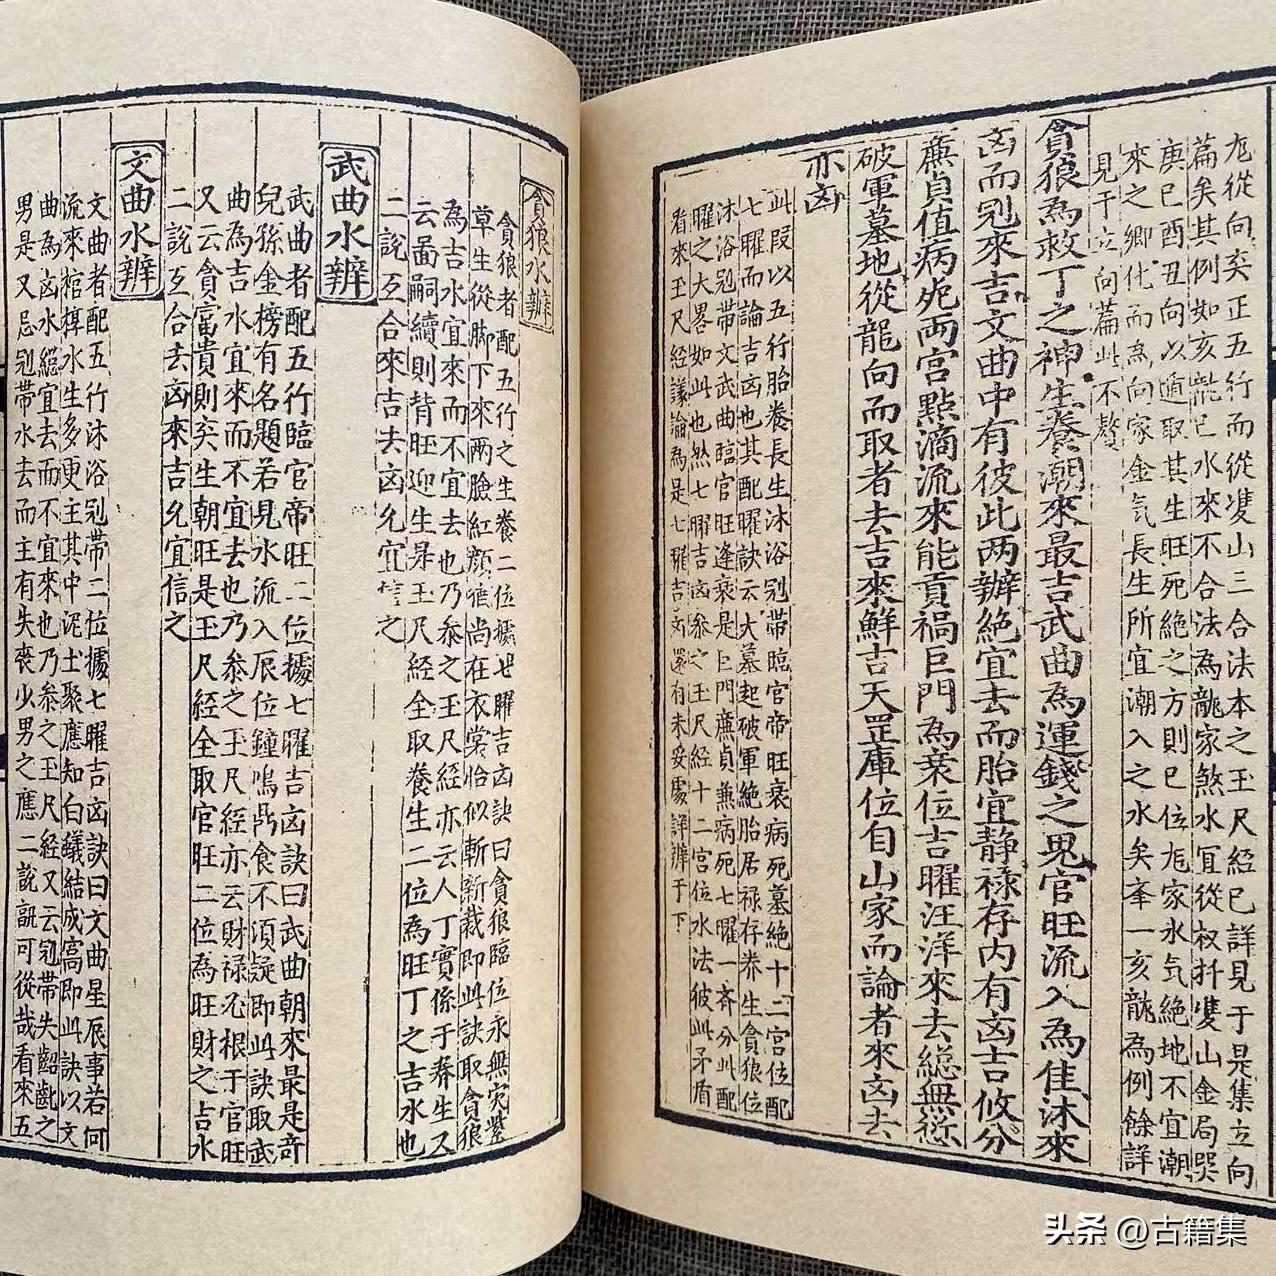 尨從向奕正五行而從雙山三合法本之玉尺經已詳見于是集立向
篇矣其例如亥龍巳水來不合法為龍家煞水宜從收雙山金局巽
庚巳酉丑向以遁取其生旺死絕之方則巳位尨家水气絕地不宜潮
來之鄉化而為向家金气長生所宜潮入之水矣夆一亥龍為例餘詳
見于立向篇此不贅
貪狼為救丁之神生養潮來最吉武曲為運錢之鬼官旺流入為佳沐來
凶而冠來吉文曲中有彼此两辧絕宜去而胎宜静禄存内有凶吉攸分
廉貞值病死两宮點滴流來能貢禍巨門為衰位吉曜汪洋來去総無
破軍墓地從龍向而取者去吉來鮮吉天罡庫位自山家而論者來凶去
亦凶
此段以五行胎養長生沐浴冠帶臨官帝旺衰病死墓絕十二宮位配
七曜而論吉凶也其配曜訣云大墓起破軍絕胎居禄存养生貪狼位
沐浴冠帶文武曲臨官旺逢衰是巨門廉貞兼病死七曜一齊分此配
曜之大畧如此也然七曜吉凶参之玉尺經十二宮位水法彼此矛盾
看來玉尺經議論為是七曜吉凶還有未妥處詳辨于下
貪狼水辨
貪狼者配五行之生養二位據七曜吉凶訣曰貪狼臨位永無灾紫
草生從脚下來两臉紅顏猶尚在衣裳恰似斬新裁即此訣取貪狼
為吉水宜來而不宜去也乃参之玉尺經亦云人丁實係于养生又
云啚嗣續則背旺迎生是玉尺經全取養生二位為旺丁之吉水也
二說互合來吉去凶允宜信之
武曲水辨
武曲者配五行臨官帝旺二位據七曜吉凶訣曰武曲朝來最是奇
兒孫金榜有名題若見水流入辰位鐘鳴鼎食不須疑即此訣取武
曲為吉水宜來而不宜去也乃参之玉尺經亦云財禄必根于官旺
又云貪富貴則奕生朝旺是玉尺經全取官旺二位為旺財之吉水
二說互合去凶來吉允宜信之
文曲水辨
文曲者配五行沐浴冠帶二位據七曜吉凶訣曰文曲星辰事若何
流來棺槨水生多更主其中泥土聚應知白蟻結成窩即此訣以文
曲為凶水絕宜去而不宜來也乃参之玉尺經又云冠帶失齠齔之
男是又忌冠帶水去而主有失喪少男之應二說訛可從哉看來五
头条 @古籍集